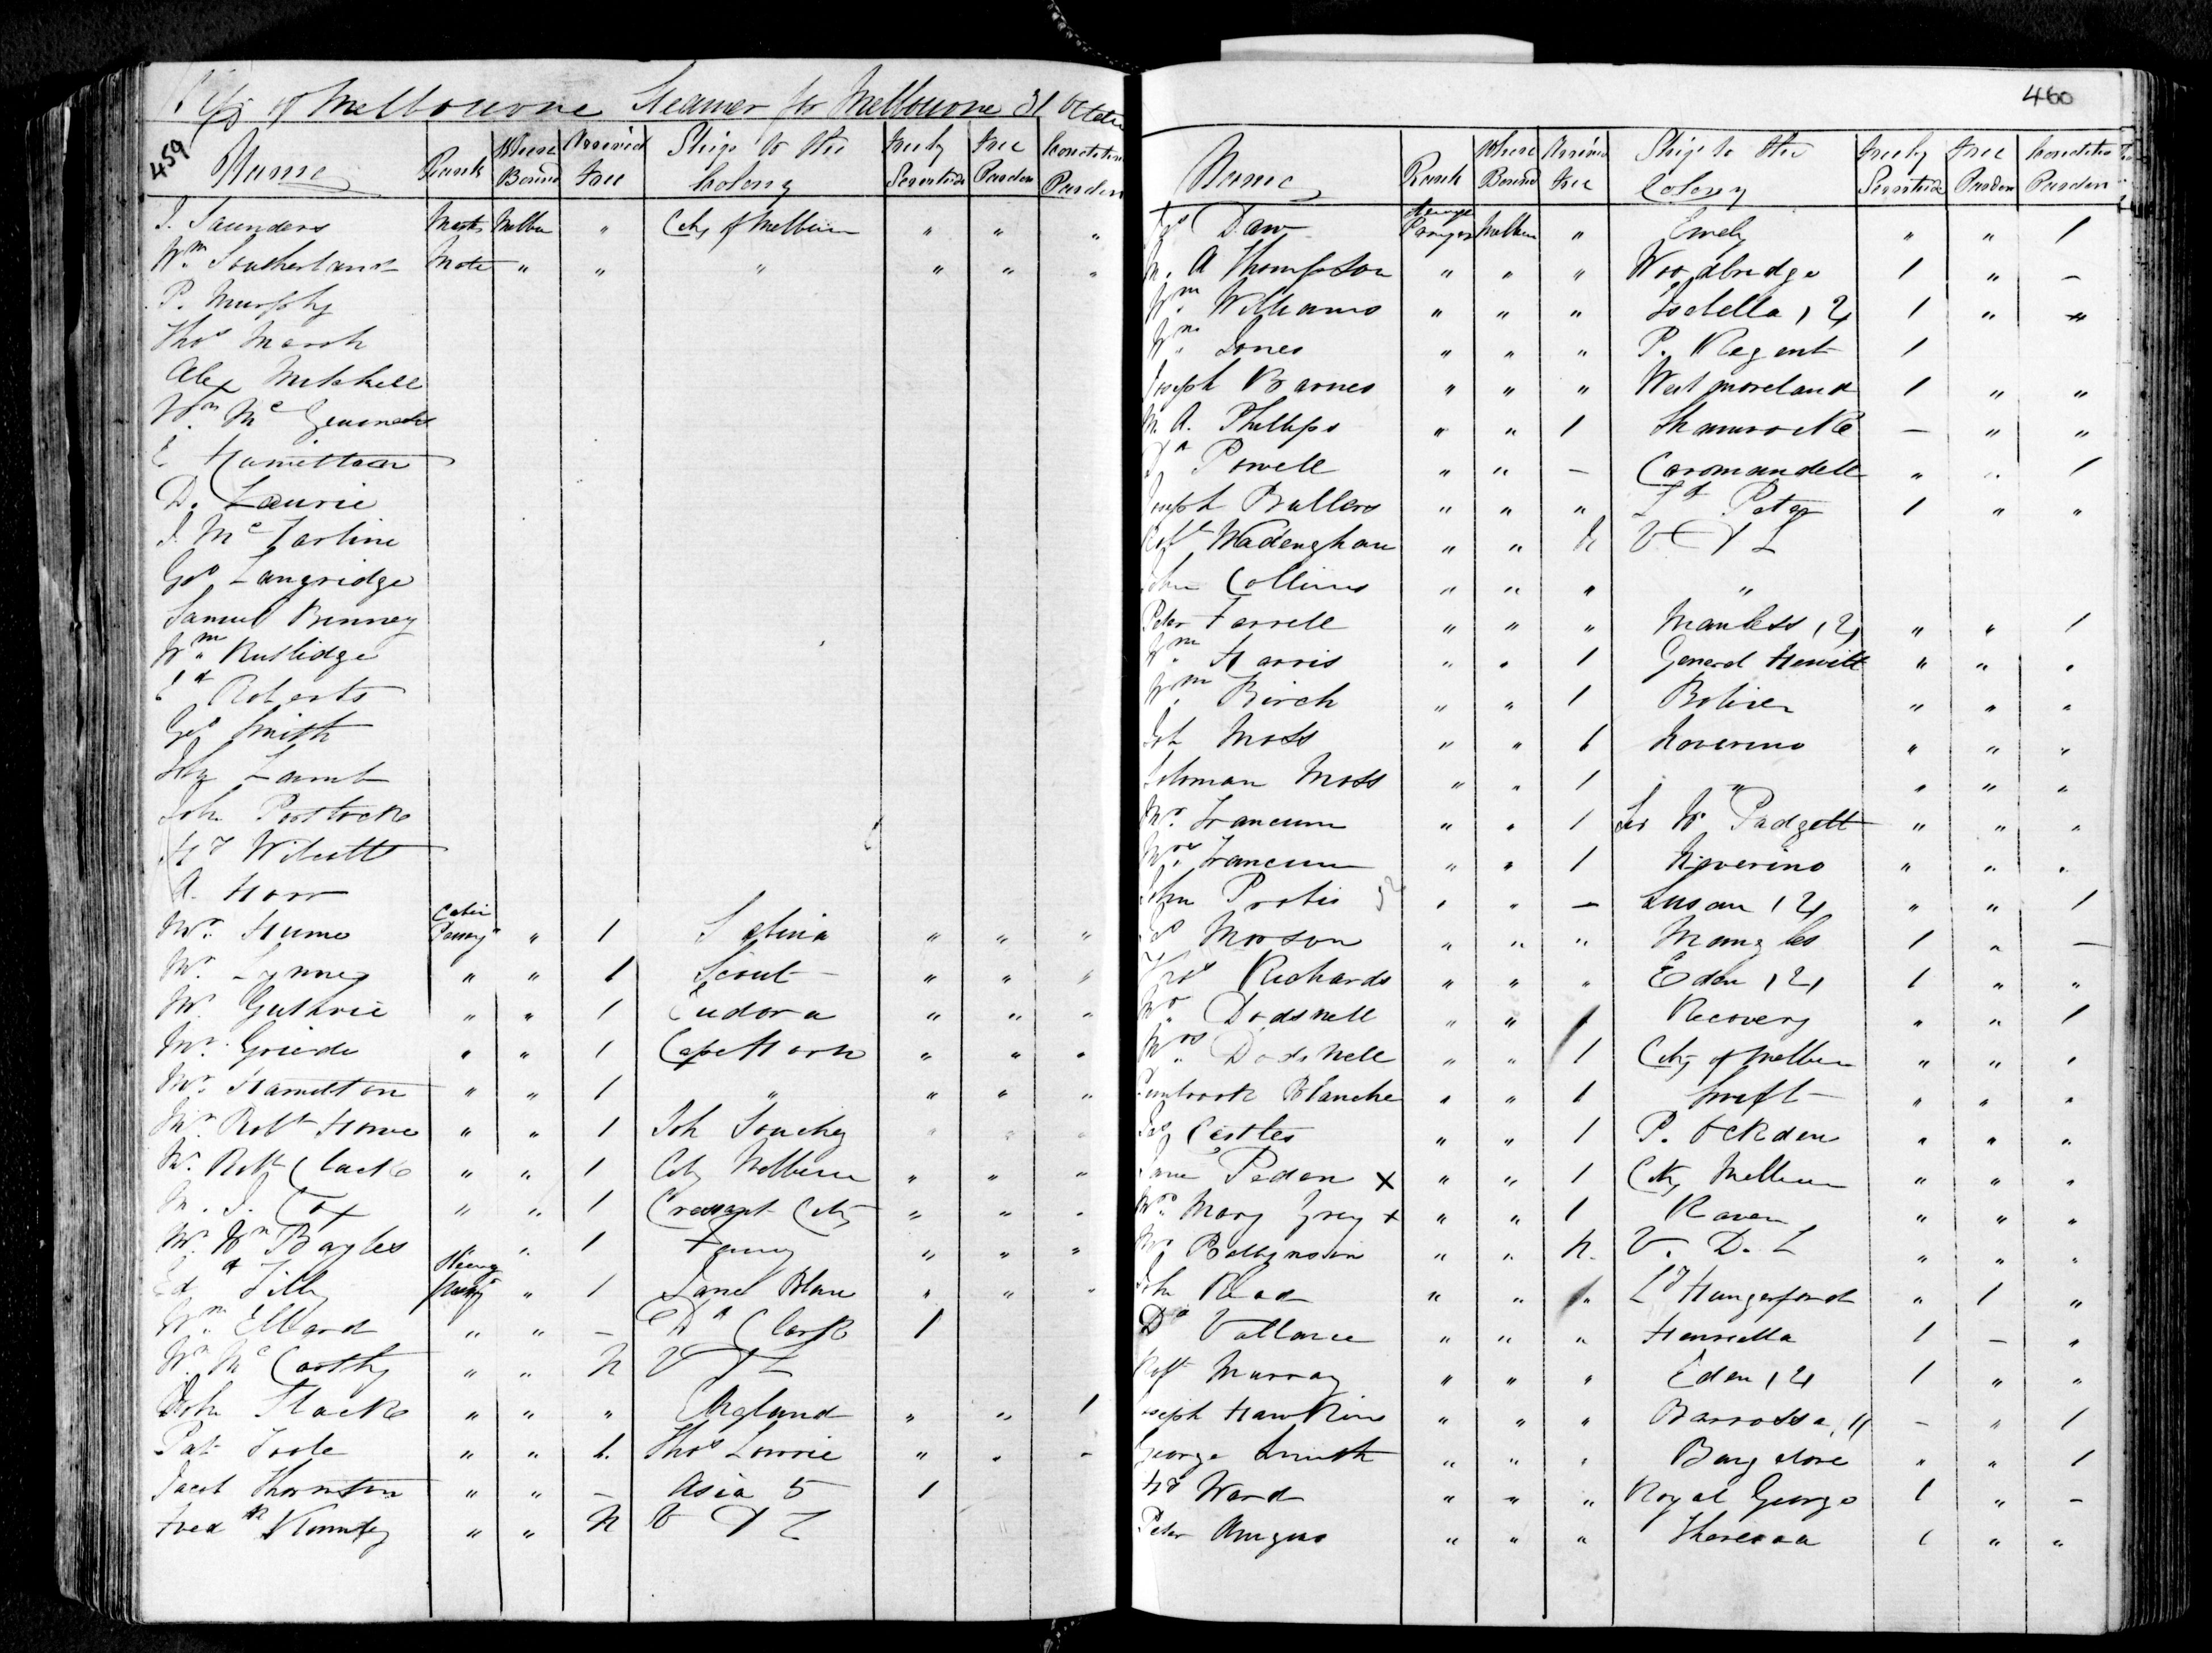 City of Melbourne Steamer for Melbourne 31 October
459
Name Rank Where Bound Arrived Free Ship to the Colony Free by Servitude Free Pardon Condition Pardon
J. Saunders Mastr Melbn " City of Melburn " " "
Wm Southerland Mate " " " " " "
P. Murphy
Thos Marsh
Alex Mitchell
Wm Mc
E Hamilton
D. Laurie
J. Mc Farline
Geo Langridge
Samuel Binney
Wm Rutlidge
Ed Roberts
Geo Smith
John Lamb
John Postocke
Hy Wilcott
A. Horr
Mr. Hume Cabin Passngr " 1 Sabina " " "
Mr. Lynney " " 1 Scout " " "
Mr. Guthrie " " 1 Eudora " " "
Mr. " " 1 Cape Horn " " "
Mr. Hamilton " " 1 " " " "
Mr. Robt Howe " " 1 Joh Souchey " " "
Mr. Robt Clarke " " 1 City Melburn " " "
M. J. Cox " " 1 Cressant City " " "
Mr. Wm Bayles " 1 Fanny " " "
Edd Tilly Steerag passngr " 1 Jane Blain " " "
Wm Ellard " " – Dn Clark 1
Wm Mc Carthy " " n V D L
John Slacke " " " England " " 1
Pat Toole " " 1. Thos Lowrie " " –
Jacob Thornton " " – Asia 5 1
Fredk " " n V D L
460
Name Rank Where Bound Arrived free Ship to the Colony Free by Servitude Free Pardon Condition Pardon
Jas Daw Steerage Passnger Melbun " Emely " " 1
M. A Thompson " " " Woodbridge 1 " –
Wm Williams " " " Isabella (2) 1 " "
Wm Jones " " " P. Regent 1
Joseph Barnes " " " Westmoreland 1 " "
M. A. Phillips " " 1 Shamrocke – " "
Powell " " – Coromandell " " 1
Joseph Bullers " " " Ld Peter 1 " "
Robt Wadengham " " n V D L
John Collins " " " "
Peter Farrell " " " Manless (2) " " 1
Wm Harris " " 1 General Hewitt " " "
Wm Birch " " 1 Boliver " " "
Joh Moss " " 1 Roverino " " "
Soloman Moss " " 1 " " " "
Mr. Francum " " 1 Sir W. Padgett " " "
Mrs. Francum " " 1 Roverino " " "
John Protis " " – Susan (2) " " 1
Geo Morson " " " Mangles 1 " –
Thos Richards " " " Eden (2) 1 " "
Mr Dodsnell " " Recovery " " 1
Mrs Dodsnell " " 1 City of Melbun " " "
Pembrook Blanche " " 1 Swift " " "
Jas Castles " " 1 P. Ockden " " "
Jane Peden x " " 1 City Melbun " " "
Mrs Mary Grey x " " 1 Raven " " "
Mr " " n. V. D. L " " "
John Read " " " Ld Hungerford " 1 "
Dd Vallance " " " Henrietta 1 – "
Robt Murray " " " Eden (2) 1 " "
Joseph Hawkins " " " Barrossa (1) – " 1
George Smith " " " Bangalore " " 1
Hy Ward " " " Royal George 1 " –
Peter Angus " " " Theresaa 1 " "